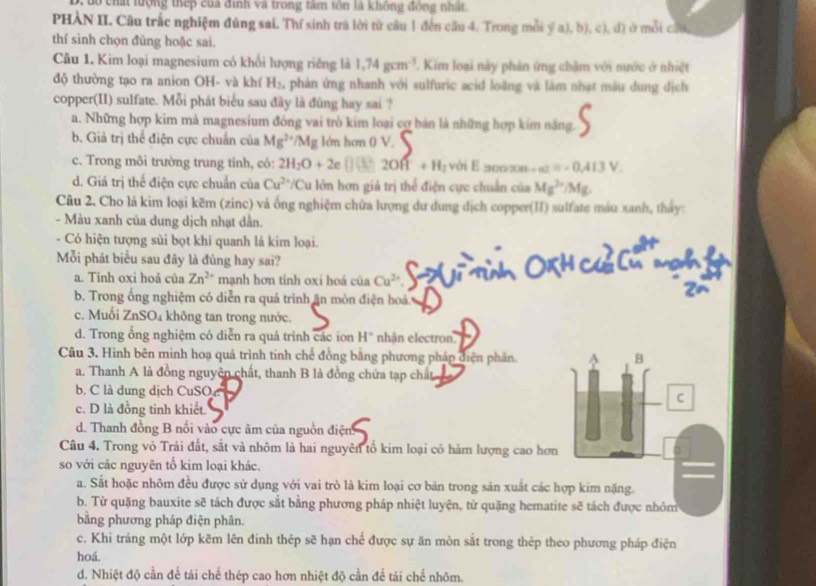 D. do chất lượng thép của đinh và trong tấm tôn là không đồng nhất.
PHẦN II. Câu trắc nghiệm đúng sai. Thí sinh trả lời từ câu 1 đến câu 4. Trong mỗi ý a), b), c), d) ở mỗi câu,
thí sinh chọn đúng hoặc sai.
Câu 1. Kim loại magnesium có khối lượng riêng là 1,74 gcm⁻³. Kim loại này phản ứng chậm với nước ở nhiệt
độ thường tạo ra anion OH- và khí H₂, phản ứng nhanh với sulfuric acid loãng và làm nhạt màu dung dịch
copper(II) sulfate. Mỗi phát biểu sau đây là đúng hay sai ?
a. Những hợp kim mà magnesium đóng vai trò kim loại cơ bản là những hợp kim nặng. S
b. Giá trị thế điện cực chuẩn của Mg²⁺/Mg lớn hơn 0 V. S
c. Trong môi trường trung tính, có: 2H₂O + 2e 2OH⁻ + H₂ với E = - 0,413 V.
d. Giá trị thế điện cực chuẩn của Cu²⁺/Cu lớn hơn giá trị thế điện cực chuẩn của Mg²⁺/Mg.
Câu 2. Cho lá kim loại kẽm (zinc) và ống nghiệm chứa lượng dư dung dịch copper(II) sulfate màu xanh, thấy:
- Màu xanh của dung dịch nhạt dần.
- Có hiện tượng sủi bọt khí quanh lá kim loại.
Mỗi phát biểu sau đây là đúng hay sai?
a. Tính oxi hoá của Zn²⁺ mạnh hơn tính oxi hoá của Cu²⁺. S → Vì tính OXH của Cu²⁺ mạnh hơn Zn²⁺
b. Trong ống nghiệm có diễn ra quá trình ăn mòn điện hoá. Đ
c. Muối ZnSO₄ không tan trong nước. S
d. Trong ống nghiệm có diễn ra quá trình các ion H⁺ nhận electron. Đ
Câu 3. Hình bên minh hoạ quá trình tinh chế đồng bằng phương pháp điện phân.
A B
a. Thanh A là đồng nguyên chất, thanh B là đồng chứa tạp chất. Đ
b. C là dung dịch CuSO₄. Đ
C
c. D là đồng tinh khiết. S
d. Thanh đồng B nối vào cực âm của nguồn điện. S
Câu 4. Trong vỏ Trái đất, sắt và nhôm là hai nguyên tố kim loại có hàm lượng cao hơn
D
so với các nguyên tố kim loại khác.
a. Sắt hoặc nhôm đều được sử dụng với vai trò là kim loại cơ bản trong sản xuất các hợp kim nặng.
b. Từ quặng bauxite sẽ tách được sắt bằng phương pháp nhiệt luyện, từ quặng hematite sẽ tách được nhôm
bằng phương pháp điện phân.
c. Khi tráng một lớp kẽm lên đinh thép sẽ hạn chế được sự ăn mòn sắt trong thép theo phương pháp điện
hoá.
d. Nhiệt độ cần để tái chế thép cao hơn nhiệt độ cần để tái chế nhôm.